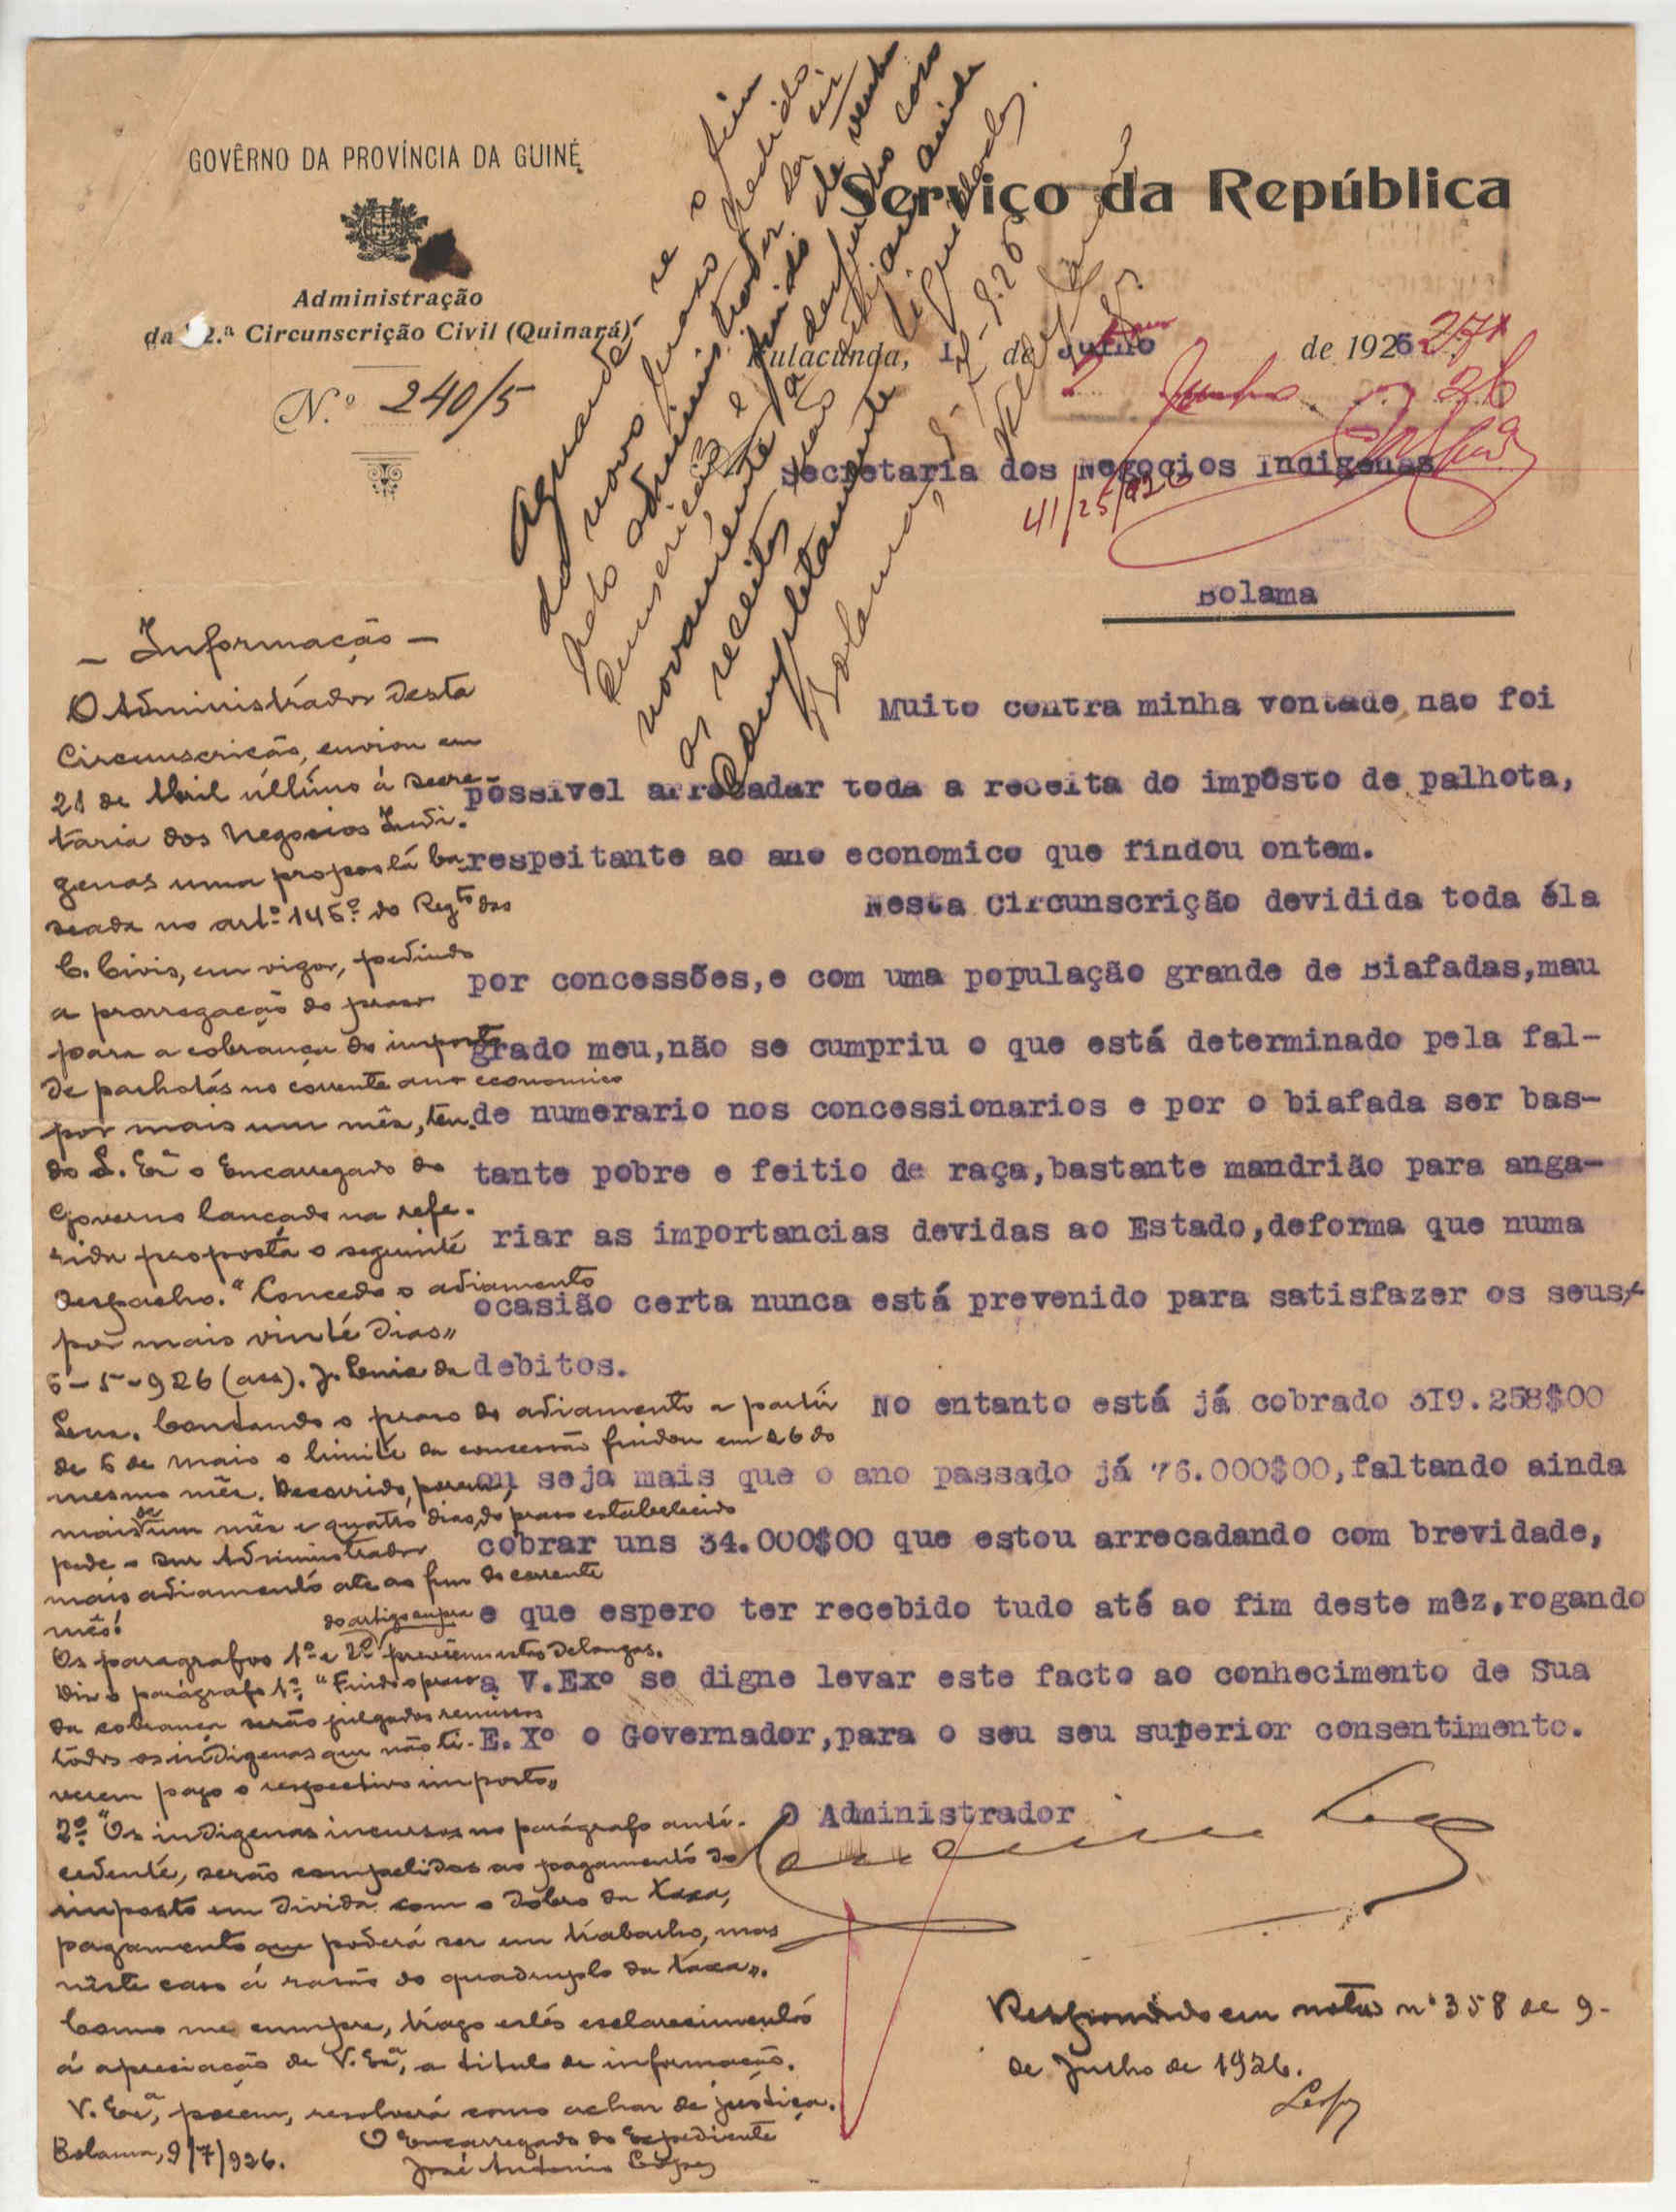 GOVÊRNO DA PROVÍNCIA DA GUINÉ
Administração
da 2.ª Circunscrição Civil (Quinará)
N.º 240/5
Serviço da República
Fulacunda, 1 de Julho de 1926
Secretaria dos Negocios Indigenas
41/25/926
Bolama
Aguarde-se o fim
do novo praso pedido
pelo administrador da cir
cunscrição e findo
novamente
as receitas
completamente liquidadas.
Bolama,
Muito contra minha vontade nao foi
possivel arrecadar toda a receita do impôsto de palhota,
respeitante ao ano economico que findou ontem.
Nesta Circunscrição devidida toda éla
por concessões,e com uma população grande de Biafadas,mau
grado meu,não se cumpriu o que está determinado pela fal-
de numerario nos concessionarios e por o biafada ser bas-
tante pobre e feitio de raça,bastante mandrião para anga-
riar as importancias devidas ao Estado,deforma que numa
ocasião certa nunca está prevenido para satisfazer os seus
debitos.
No entanto está já cobrado 3I9.258$00
ou seja mais que o ano passado já 76.000$00,faltando ainda
cobrar uns 34.000$00 que estou arrecadando com brevidade,
e que espero ter recebido tudo até ao fim deste mêz,rogando
a V.Exº se digne levar este facto ao conhecimento de Sua
E.Xº o Governador,para o seu seu superior consentimento.
O Administrador
- Informação -
O Administrador desta
Circunscrição, enviou em
21 de Abril último á Secre-
taria dos Negocios Indi-
genas uma proposta ba-
seada no artº 145º do Regto das
C. Civis, em vigor, pedindo
a prorrogação do praso
para a cobrança do imposto
de palhotas no corrente ano economico
por mais um mês, ten-
do S. Exª o Encarregado do
Governo lançado na refe-
rida proposta o seguinte
despacho. "Concedo o adiamento
por mais vinte dias„
6-5-926 (ass). J.
Contando o praso do adiamento a partir
de 6 de Maio o limite da concessão findou em 26 do
mesmo mês. Decorrido, porem,
mais de um mês e quatro dias, do praso estabelecido
pede o snr Administrador
mais adiamento ate ao fim do corrente
mês!
Os paragrafos 1º e 2º do artigo supra previnem estas delongas.
Diz o parágrafo 1º, "Findo o praso
da cobrança serão julgados remissos
todos os indigenas que não ti-
verem pago o respectivo imposto„
2º "Os indigenas incursos no parágrafo ante-
cedente, serão compelidos ao pagamento do
imposto em divida com o dôbro da taxa,
pagamento que poderá ser em trabalho, mas
nêste caso á rasão do quadruplo da taxa„.
Como me cumpre, trago estes esclarecimentos
á apreciação de V. Exª, a titulo de informação.
V. Exª, porem, resolverá como achar de justiça.
Bolama, 9/7/926.
O Encarregado do Expediente
José Antonio Lopes
Respondido em nota nº 358 de 9-
de Julho de 1926.